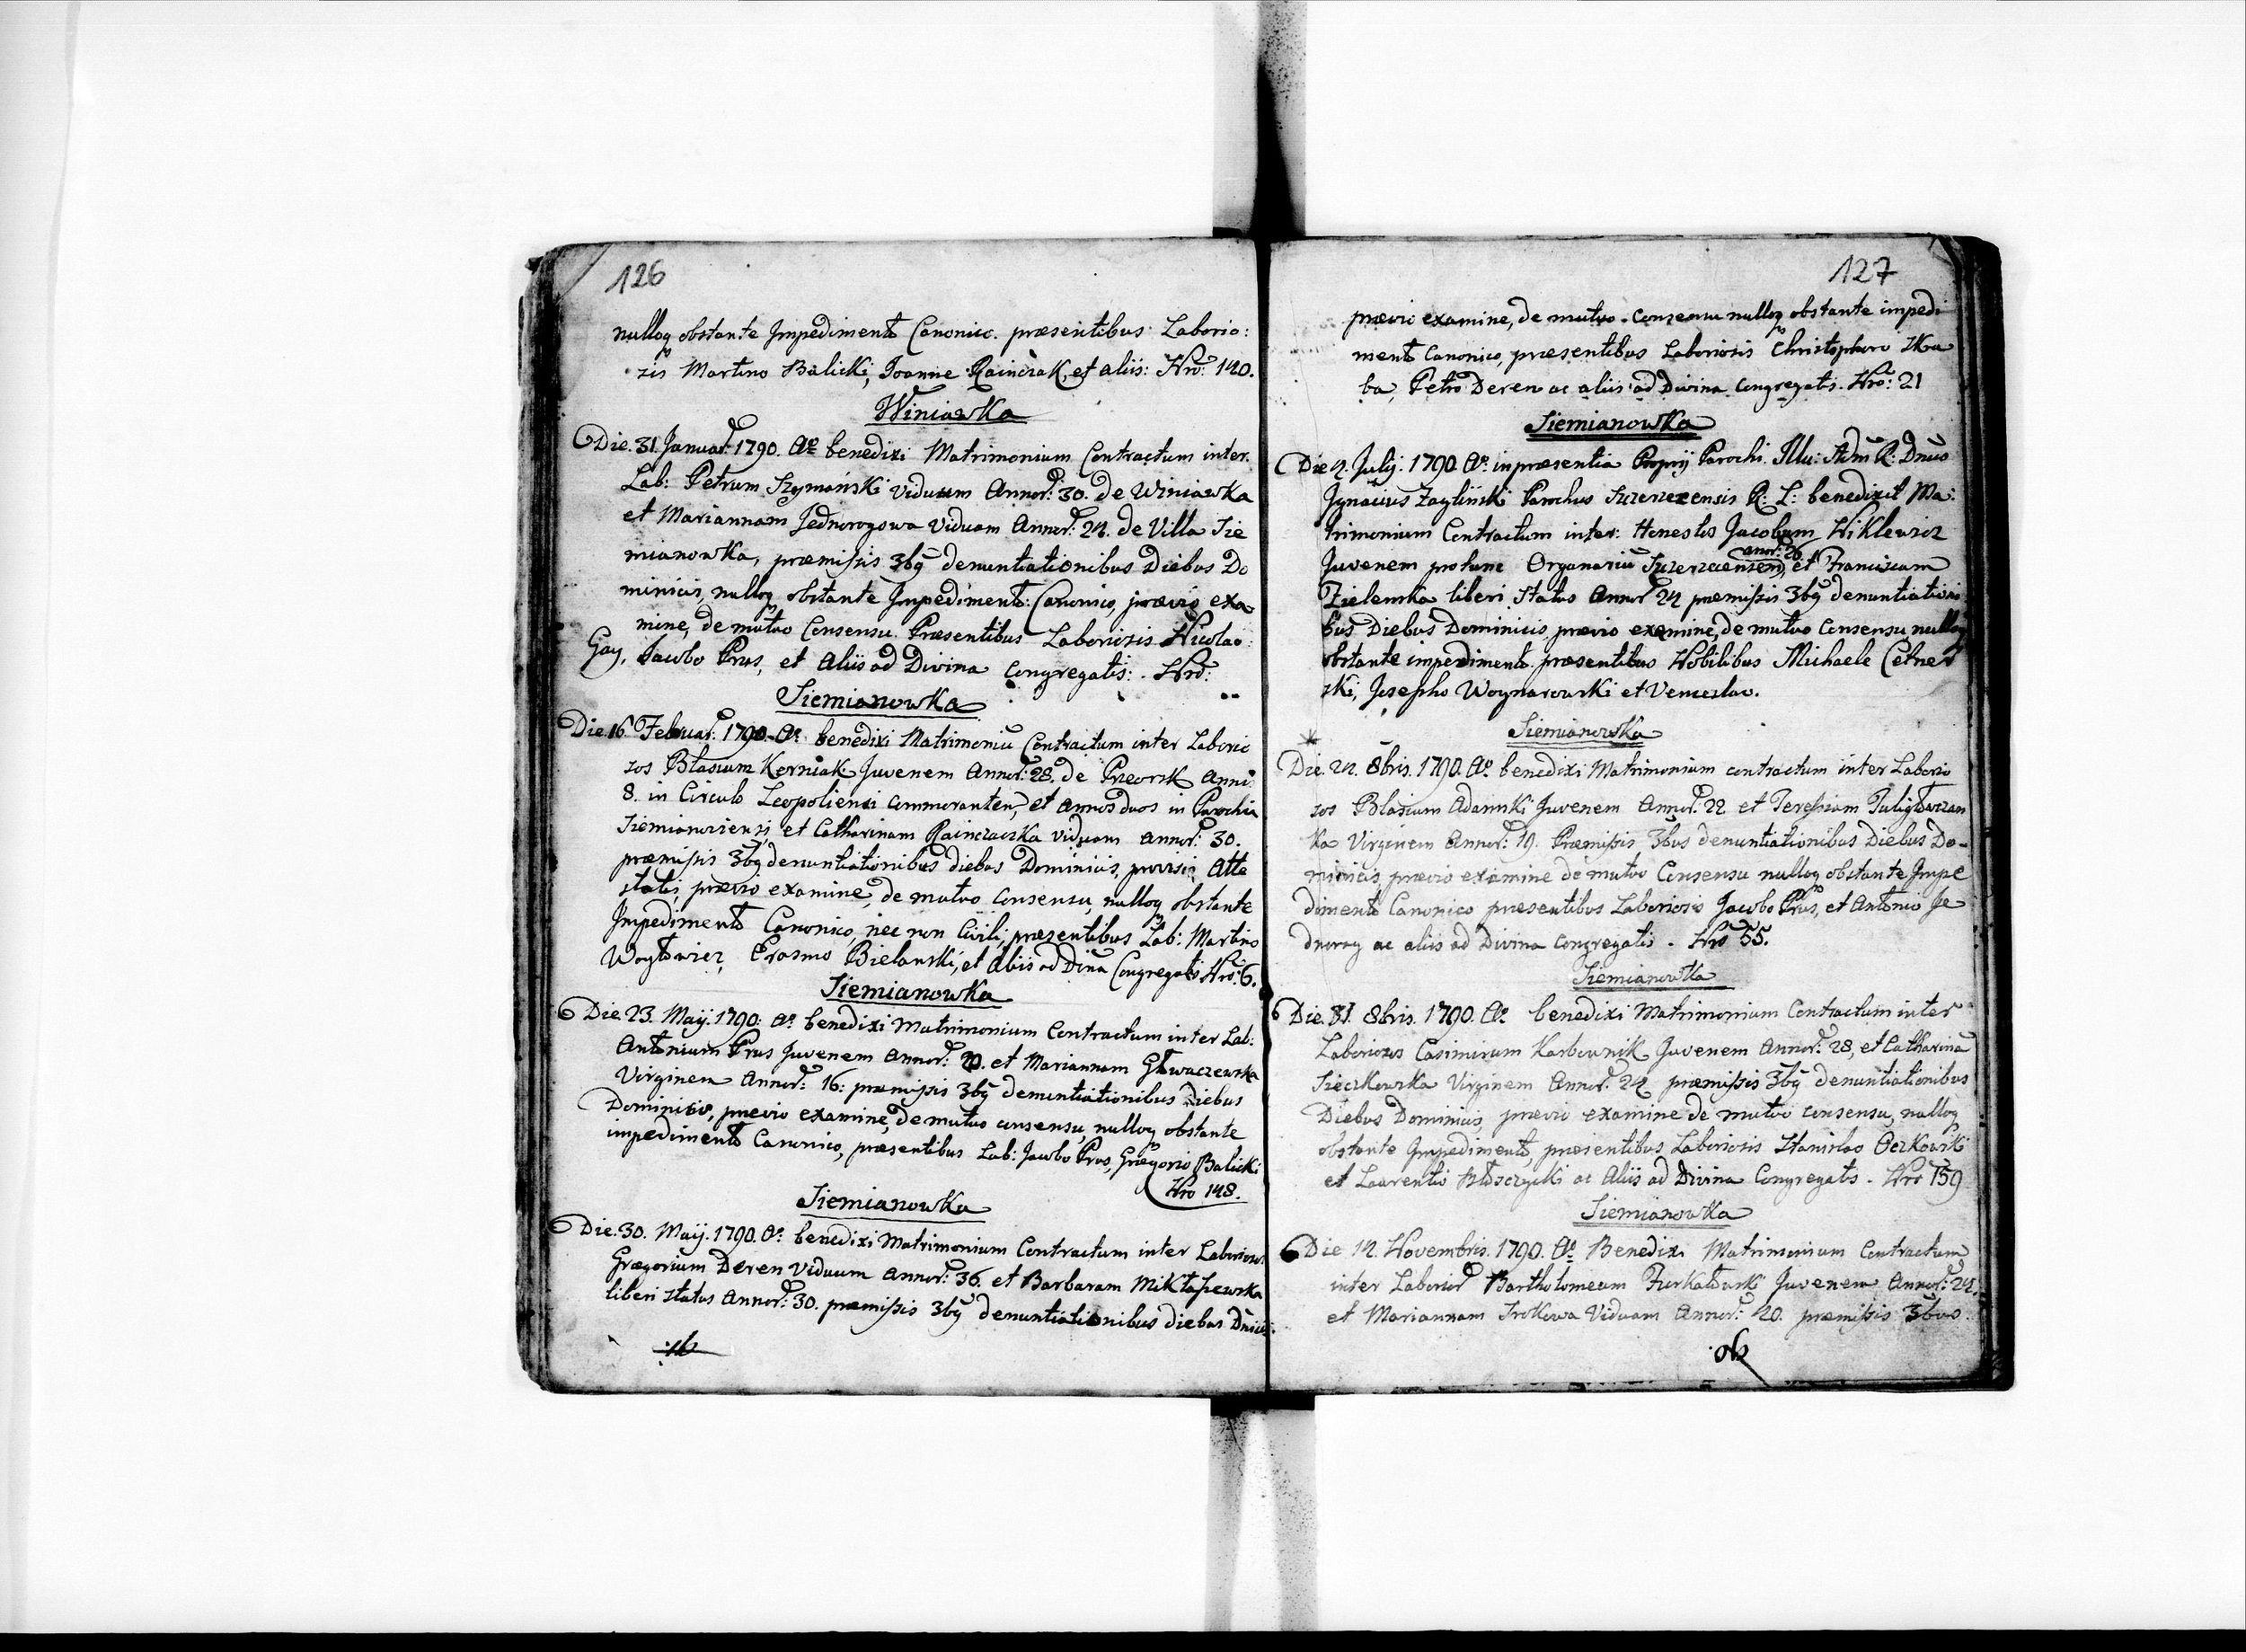 126
nulloq obstante Impedimento Canonico. præsentibus Laborio:
sis Martino Balicki, Joanne Rainczak, et aliis: Nro: 140.
Winiawka
Die. 31. Januar: 1790. Ao benedixi Matrimonium Contractum inter.
Lab: Petrum Szymański Viduum Annor: 30. de Winiawka
et Mariannam Jednorogowa Viduam Annor: 24. de Villa Sie
mianowka, præmissis 3bq denuntiationibus Diebus Do
minicis, nulloq obstante Impedimento: Canonico, prævio exa
mine, de mutuo Consensu. Præsentibus Laboriosis Nicolao
Gay, Jacobo Prus, et Aliis ad Divina Congregatis: Nro:
Siemianowka
Die. 16 Februar: 1790. Ao benedixi Matrimoniũ Contractum inter Laborio
sos Blasium Kerniak Juvenem Annor: 28. de Preorsk Anni
8. in Circulo Leopoliensi commorantem, et annos duos in Parochia
Siemianoviensi, et Catharinam Rainczaczka viduam annor: 30.
præmissis 3bq denuntiationibus diebus Dominicis, provisis Atte
statis, prævio examine, de mutuo consensu, nulloq obstante
Impedimento Canonico, nec non Civili, præsentibus Lab: Martino
Woytowicz, Erasmo Bielanski, et Aliis ad Dina Congregatis Nro: 6.
Siemianowka
Die. 23. Maij. 1790. Ao benedixi Matrimonium Contractum inter Lab:
Antonium Prus Juvenem Annor: 20. et Mariannam Głowaczewska
Virginem Annor: 16: præmissis 3bq denuntiationibus Diebus
Dominicis, prævio examine, de mutuo consensu, nulloq obstante
impedimento Canonico, præsentibus Lab: Jacobo Prus, Gregorio Balicki
Nro 148.
Siemianowka
Die. 30. Maij. 1790. Ao benedixi Matrimonium Contractum inter Laboriosos
Gregorium Deren viduum annor: 36. et Barbaram Mikłaszewska
liberi status Annor: 30. præmissis 3bq denuntiationibus diebus Dnicis
127
prævio examine, de mutuo consensu nulloq obstante impedi
mento Canonico, præsentibus Laboriosis Christophoro Skra
ba, Petro Deren ac aliis ad Divina Congregatis. Nro: 21
Siemianowka
Die 4. Julij. 1790 Ao in præsentia Proprij Parochi. Illu: Adm R: Dnus
Ignatius Zagliński Parochus Szczerzecensis R: L: benedixit Ma:
trimonium Contractum inter: Honestos Jacobum Niklewicz
annor: 26.
Juvenem protunc Organariũ Szczerzecensem, et Franciscam
Zielenska liberi Status Annor 24 præmissis 3bq denuntiationi
bus Diebus Dominicis prævio examine, de mutuo Consensu nulloq
obstante impedimento præsentibus Nobilibus Michaele Cetner
ski, Josepho Woynarowski et Venceslao.
Siemianowka
Die. 24. 8bris. 1790. Ao. benedixi Matrimonium contractum inter Laborio
sos Blasium Adamski Juvenem Annor: 22 et Teressiam Tuligłowczan
ka Virginem Annor: 19. Præmissis 3bus denuntiationibus Diebus Do-
minicis, prævio examine de mutuo Consensu nulloq obstante Impe
dimento Canonico præsentibus Laboriosis Jacobo Prus, et Antonio Je
dnorog ac aliis ad Divina congregatis. Nro 55.
Siemianowka
Die. 31. 8bris. 1790. Ao benedixi Matrimonium Contractum inter
Laboriosos Casimirum Karbownik Juvenem Annor: 28, et Catharinã
Sieczkowska Virginem Annor: 24. præmissis 3bq denuntiationibus
Diebus Dominicis, prævio examine de mutuo consensu, nulloq
obstante Impedimento, præsentibus Laboriosis Stanislao Oczkowski
et Laurentio Błoszczycki ac Aliis ad Divina Congregatis. Nro 159
Siemianowka
Die 14. Novembris. 1790. Ao Benedixi Matrimonium Contractum
inter Laborios Bartholomeum Furkałowski Juvenem Annor: 24.
et Mariannam Srokowa Viduam Annor: 40. præmissis 3bus